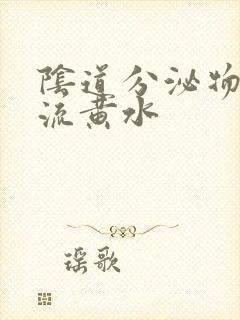 陰道分泌物
流黃水
瑶歌